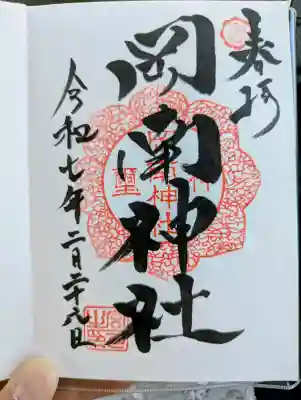 奉拝
岡南神社
令和七年二月二十八日